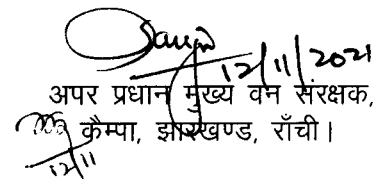 12/11/2021
अपर प्रधान मुख्य वन संरक्षक,
कैम्पा, झारखण्ड, राँची।
12/11